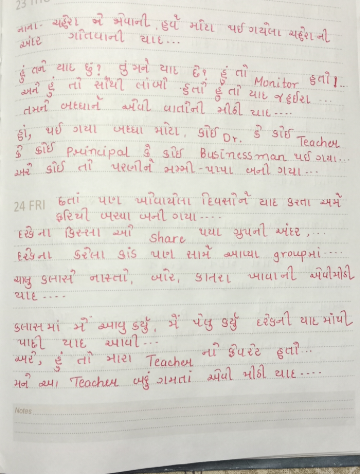 23 THU
નાના ચહેરા એ એવાની, હવે મોટા થઈ ગયેલા ચહેરાની
અંદર ગોતવાની યાદ...
હું તને યાદ છું? તું મને યાદ છે! હું તો Monitor હતો!..
અને હું તો સૌથી લાંબો હતો હું તો યાદ જ હઈશ...
તમને બધાને એવી વાતોની મીઠી યાદ....
હા, થઈ ગયા બધા મોટા, કોઈ Dr. કે કોઈ Teacher
કે કોઈ Principal કે કોઈ Businessman થઈ ગયા...
અરે કોઈ તો પરણીને મમ્મી-પાપા બની ગયા...
24 FRI
છતાં પણ ખોવાયેલા દિવસોને યાદ કરતા અમે
ફરિથી બચ્ચા બની ગયા....
દરેકના કિસ્સા અહીં Share થયા ગ્રુપની અંદર,...
દરેકના કરેલા કાંડ પણ સામે આવ્યા groupમાં....
ચાલુ કલાસે નાસ્તો, બોર, કાતરા ખાવાની એવી મીઠી
યાદ....
કલાસમાં મેં આવુ કર્યુ, મેં પેલુ કર્યુ દરેકની યાદ માંથી
પાછી યાદ આવી...
અરે, હું તો મારા Teacher નો ફેવરેટ હતો...
મને આ Teacher બહું ગમતાં એવી મીઠી યાદ....
Notes